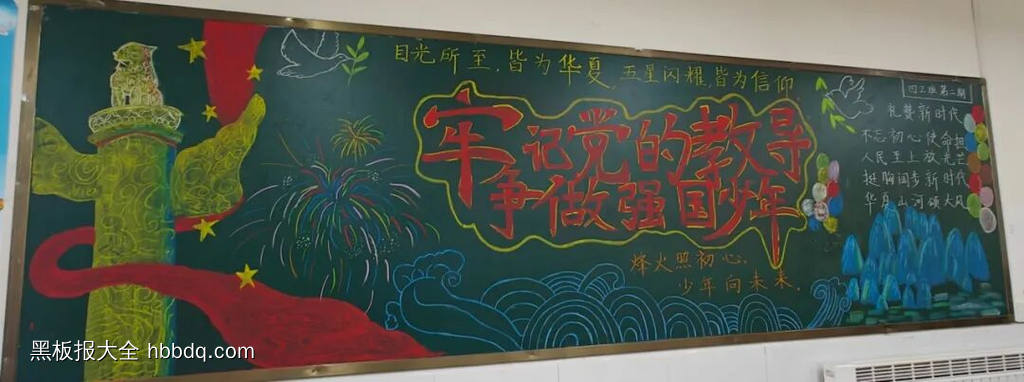 目光所至，皆为华夏，五星闪耀，皆为信仰
牢记党的教导
争做强国少年
烽火照初心，
少年向未来。
四2班第二期
礼赞新时代
不忘初心使命担
人民至上放光芒
挺胸阔步新时代
华夏山河颂大风
黑板报大全 hbbdq.com